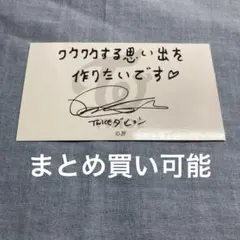 ワクワクする思い出を
作りたいです♡
TWICEダヒョン
まとめ買い可能